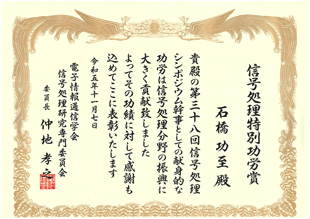 信号処理特別功労賞
石橋 功至 殿
貴殿の第三十八回信号処理
シンポジウム幹事としての献身的な
功労は信号処理分野の振興に
大きく貢献致しました
よってその功績に対して感謝も
込めてここに表彰いたします
令和五年十一月七日
電子情報通信学会
信号処理研究専門委員会
委員長 仲地 孝之